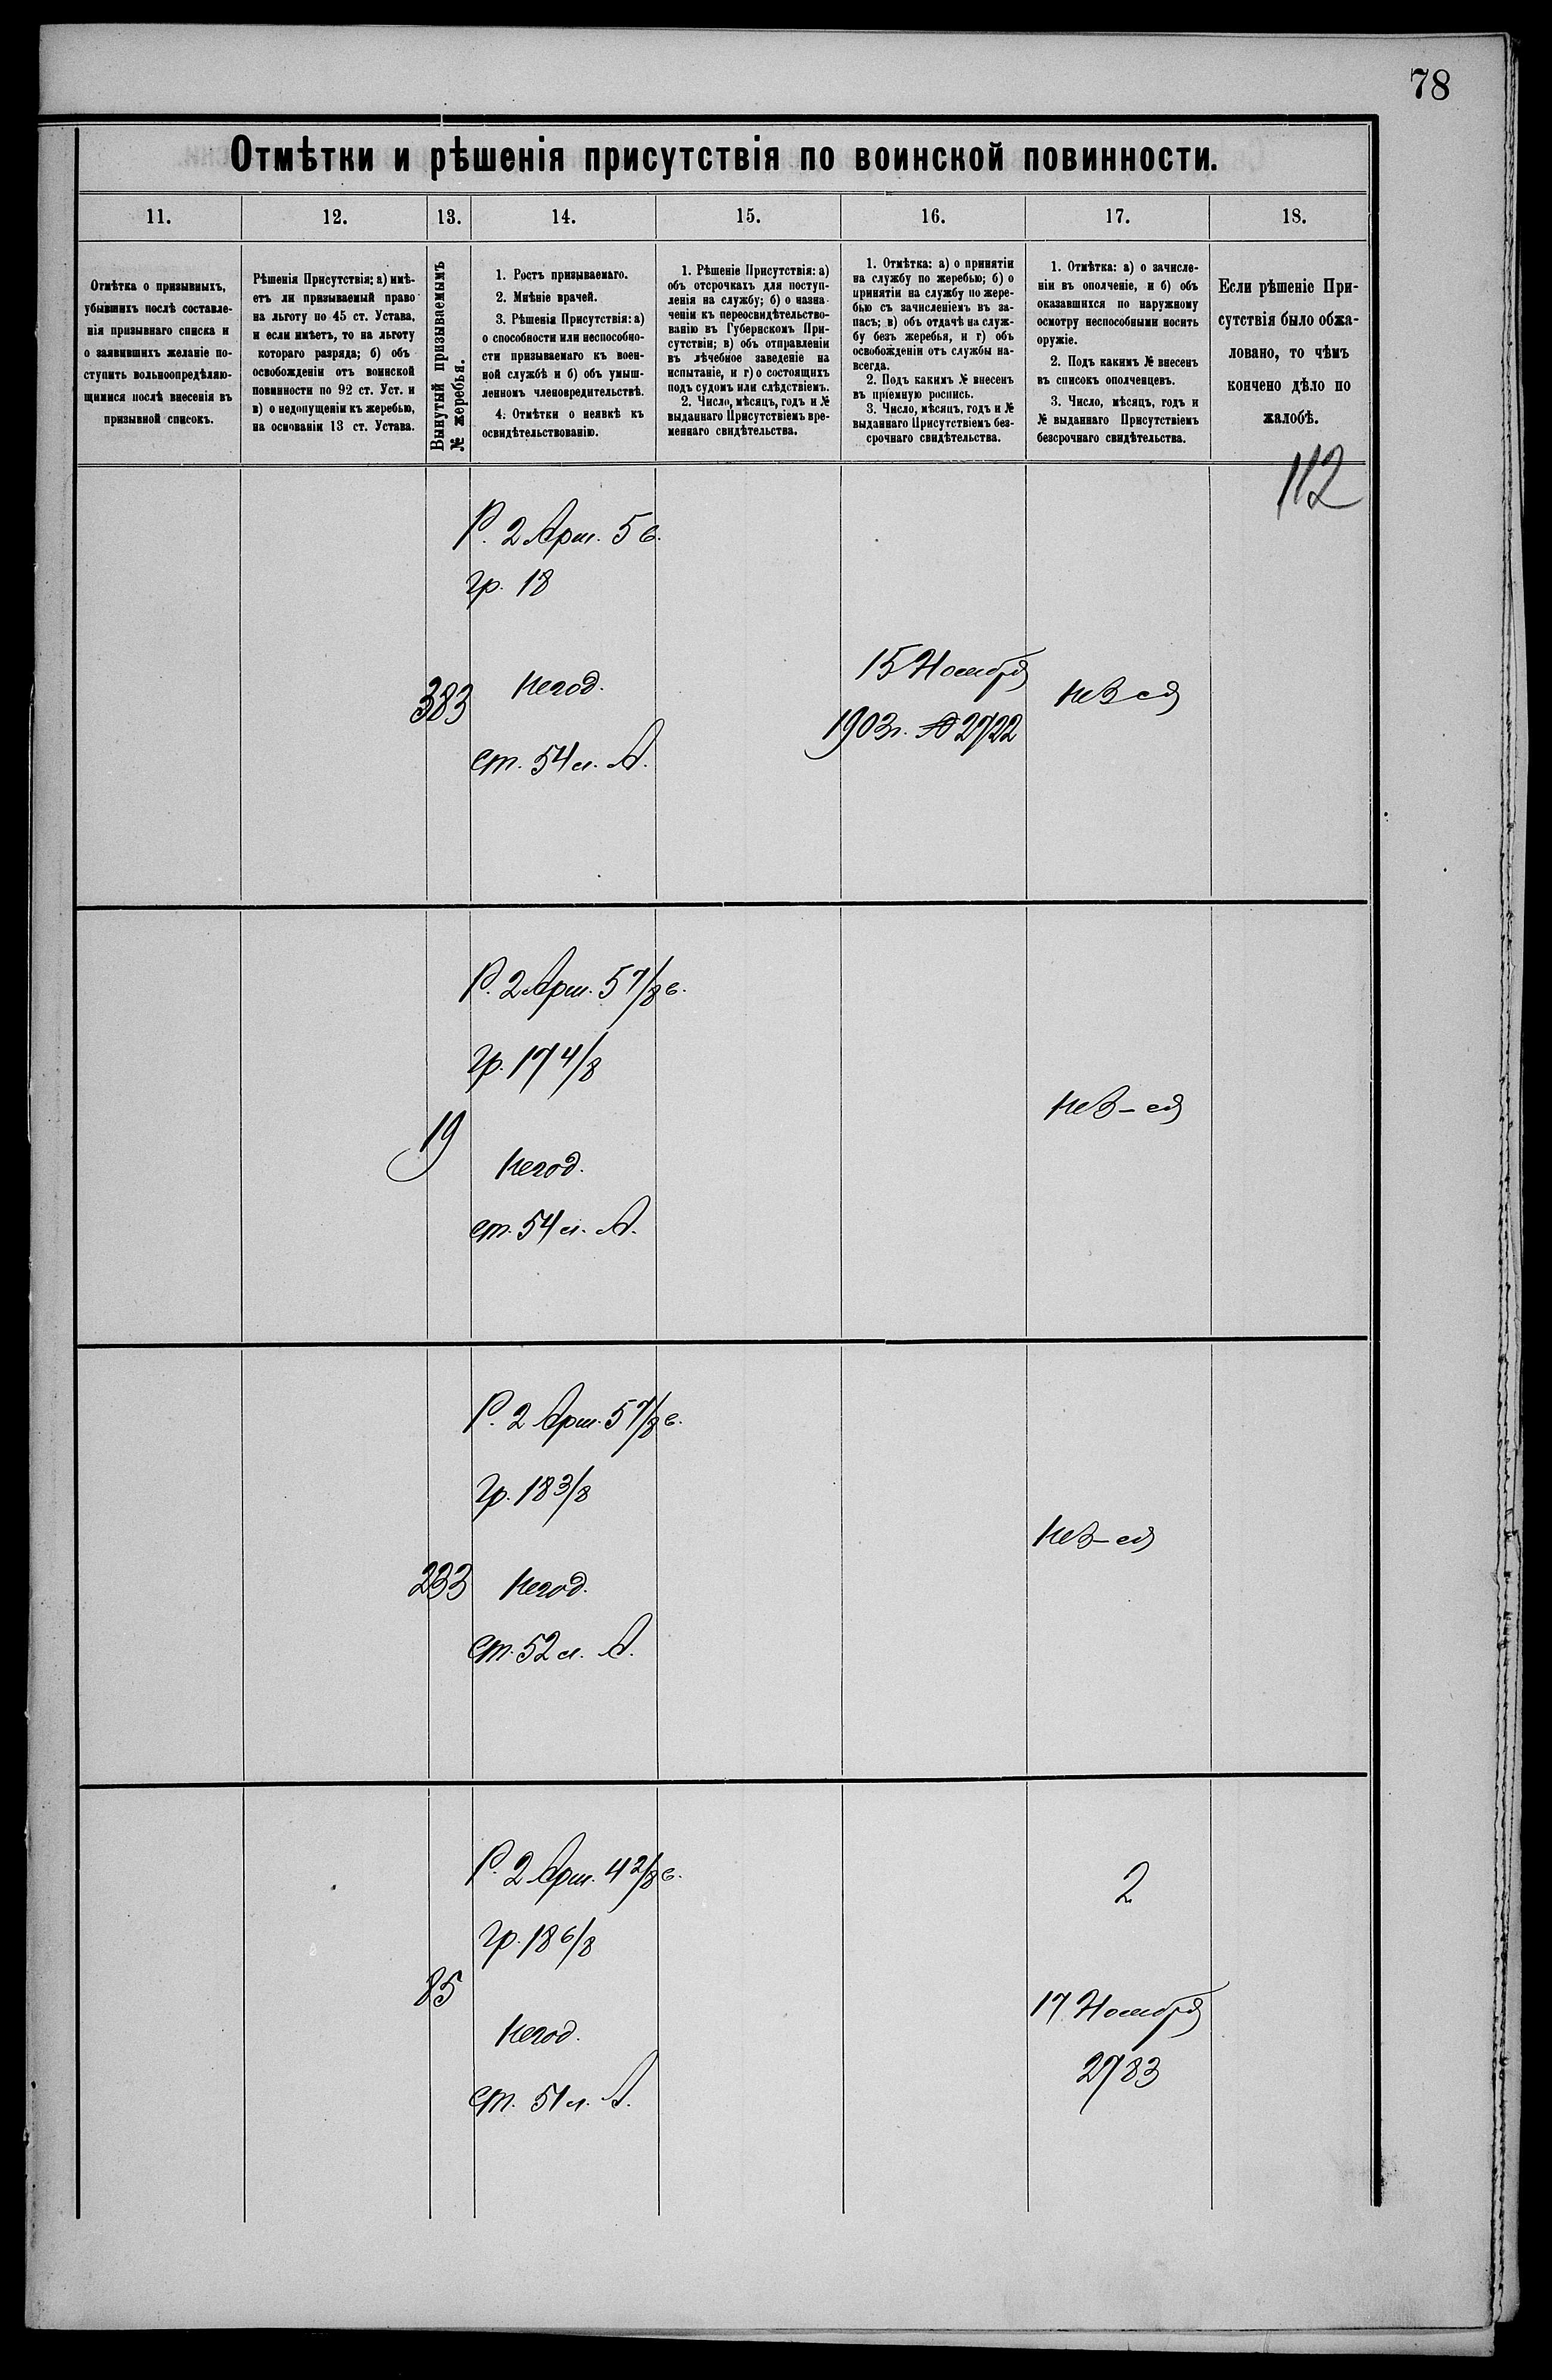 78
Отмѣтки и рѣшенія присутствія по воинской повинности.
11.
12.
13.
14.
15.
16.
17.
18.
Отмѣтка о призывныхъ,
убывшихъ послѣ составле-
нія призывнаго списка и
о заявившихъ желаніе по-
ступить вольноопредѣляю-
щимися послѣ внесенія въ
призывной списокъ.
Рѣшенія Присутствія: а) имѣ-
етъ ли призываемый право
на льготу по 45 ст. Устава,
и если имѣетъ, то на льготу
котораго разряда; б) объ
освобожденіи отъ воинской
повинности по 92 ст. Уст. и
в) о недопущеніи къ жеребью,
на основаніи 13 ст. Устава.
Вынутый призываемымъ
№ жеребья.
1. Ростъ призываемаго.
2. Мнѣніе врачей.
3. Рѣшенія Присутствія: а)
о способности или неспособно-
сти призываемаго къ воен-
ной службѣ и б) объ умыш-
ленномъ членовредительствѣ.
4. Отмѣтки о неявкѣ къ
освидѣтельствованію.
1. Рѣшеніе Присутствія: а)
объ отсрочкахъ для поступ-
ленія на службу; б) о назна-
ченіи къ переосвидѣтельство-
ванію въ Губернскомъ При-
сутствіи; в) объ отправленіи
въ лѣчебное заведеніе на
испытаніе, и г) о состоящихъ
подъ судомъ или слѣдствіемъ.
2. Число, мѣсяцъ, годъ и №
выданнаго Присутствіемъ вре-
меннаго свидѣтельства.
1. Отмѣтка: а) о принятіи
на службу по жеребью; б) о
принятіи на службу по жере-
бью съ зачисленіемъ въ за-
пасъ; в) объ отдачѣ на служ-
бу безъ жеребья, и г) объ
освобожденіи отъ службы на-
всегда.
2. Подъ какимъ № внесенъ
въ пріемную роспись.
3. Число, мѣсяцъ, годъ и №
выданнаго Присутствіемъ без-
срочнаго свидѣтельства.
1. Отмѣтка: а) о зачисле-
ніи въ ополченіе, и б) объ
оказавшихся по наружному
осмотру неспособными носить
оружіе.
2. Подъ какимъ № внесенъ
въ списокъ ополченцевъ.
3. Число, мѣсяцъ, годъ и
№ выданнаго Присутствіемъ
безсрочнаго свидѣтельства.
Если рѣшеніе При-
сутствія было обжа-
ловано, то чѣмъ
кончено дѣло по
жалобѣ.
112
Р. 2 Арш. 5 в.
гр. 18
383
негод.
ст. 54 л. А.
15 Ноября
1903 г. № 2722
Р. 2 Арш. 5 7/8 в.
гр. 17 4/8
19
негод.
ст. 54 л. А.
Р. 2 Арш. 5 7/8 в.
гр. 18 3/8
233
негод.
ст. 52 л. А.
Р. 2 Арш. 4 2/8 в.
гр. 18 6/8
85
негод.
ст. 51 л. А.
2
17 Ноября
2783